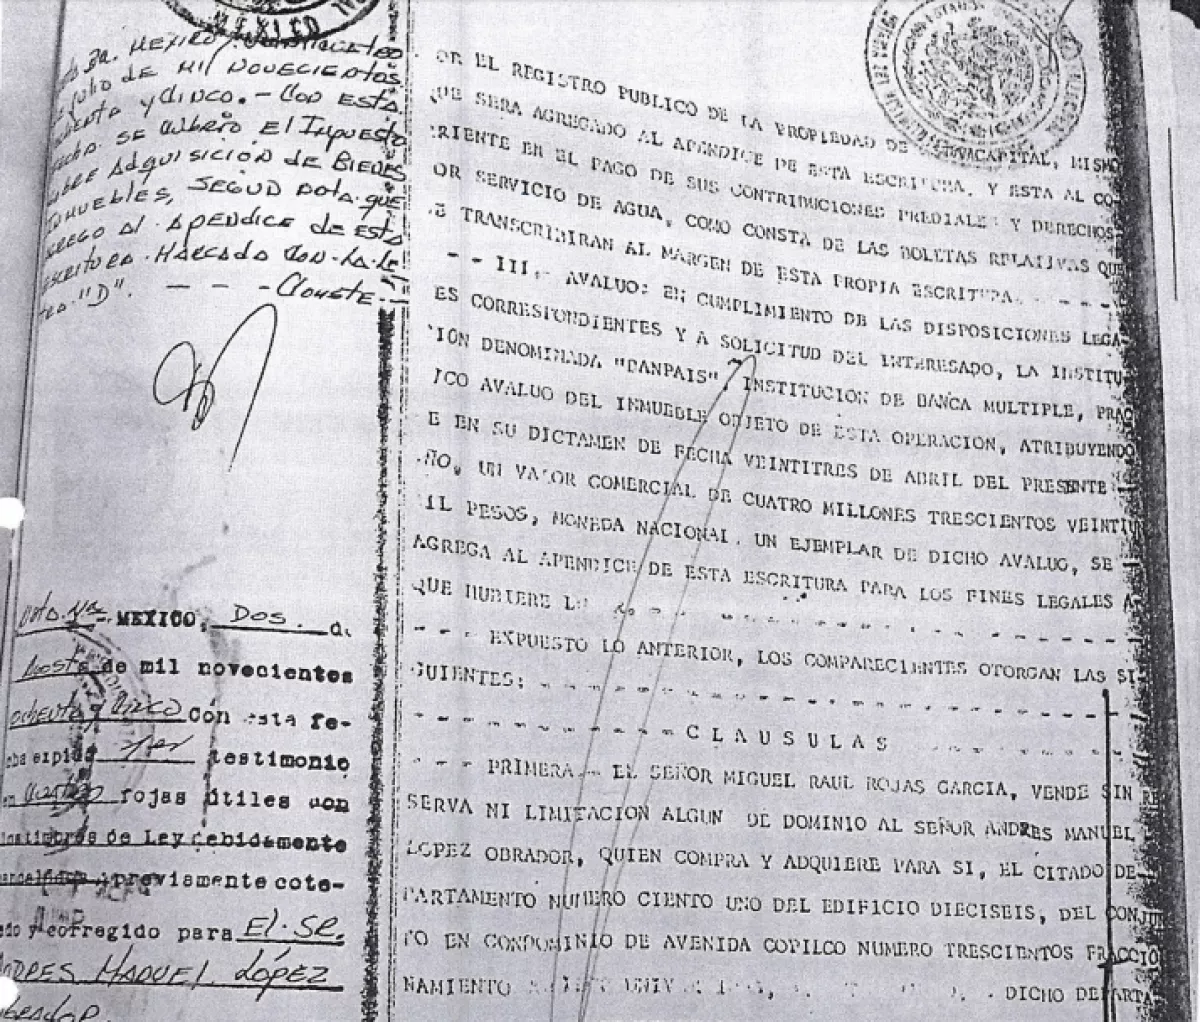 MEXICO
3a. MEXICO,
Julio DE MIL NOVECIENTOS
y CINCO. - CON ESTA
SE CUBRIO EL IMPUESTO
ADQUISICIÓN DE BIENES
SEGUN NOTA QUE
AL APENDICE DE ESTA
ESCRITURA MARCADO CON LA LE-
"D". - - - CONSTE.-
MEXICO, DOS. d
de mil novecientos
y CINCO Con esta fe-
expido testimonio
fojas útiles con
de Ley debidamente
previamente cote-
y corregido para El. SR.
MANUEL LÓPEZ
OR EL REGISTRO PUBLICO DE LA PROPIEDAD DE CAPITAL, MISMO
QUE SERA AGREGADO AL APENDICE DE ESTA ESCRITURA, Y ESTA AL CO-
RRIENTE EN EL PAGO DE SUS CONTRIBUCIONES PREDIALES Y DERECHOS
OR SERVICIO DE AGUA, COMO CONSTA DE LAS BOLETAS RELATIVAS QUE
SE TRANSCRIBIRAN AL MARGEN DE ESTA PROPIA ESCRITURA. - - - - -
- - III.- AVALUO: EN CUMPLIMIENTO DE LAS DISPOSICIONES LEGA-
ES CORRESPONDIENTES Y A SOLICITUD DEL INTERESADO, LA INSTITU-
ION DENOMINADA "BANPAIS", INSTITUCION DE BANCA MULTIPLE, PRAC
ICO AVALUO DEL INMUEBLE OBJETO DE ESTA OPERACION, ATRIBUYENDO
E EN SU DICTAMEN DE FECHA VEINTITRES DE ABRIL DEL PRESENTE
ÑO, UN VALOR COMERCIAL DE CUATRO MILLONES TRESCIENTOS VEINTIU
IL PESOS, MONEDA NACIONAL. UN EJEMPLAR DE DICHO AVALUO, SE -
AGREGA AL APENDICE DE ESTA ESCRITURA PARA LOS FINES LEGALES A
QUE HUBIERE - - - - - - - - - - - -
- - - EXPUESTO LO ANTERIOR, LOS COMPARECIENTES OTORGAN LAS SI
GUIENTES: - - - - - - - - - - - - - - - -
- - - - - - - - - - C L A U S U L A S - - - - - - - -
- - - PRIMERA.- EL SEÑOR MIGUEL RAUL ROJAS GARCIA, VENDE SIN RE
SERVA NI LIMITACION ALGUN DE DOMINIO AL SEÑOR ANDRES MANUEL
LOPEZ OBRADOR, QUIEN COMPRA Y ADQUIERE PARA SI, EL CITADO DE-
PARTAMENTO NUMERO CIENTO UNO DEL EDIFICIO DIECISEIS, DEL CONJUN
TO EN CONDOMINIO DE AVENIDA COPILCO NUMERO TRESCIENTOS FRACCIO
NAMIENTO DICHO DEPARTA